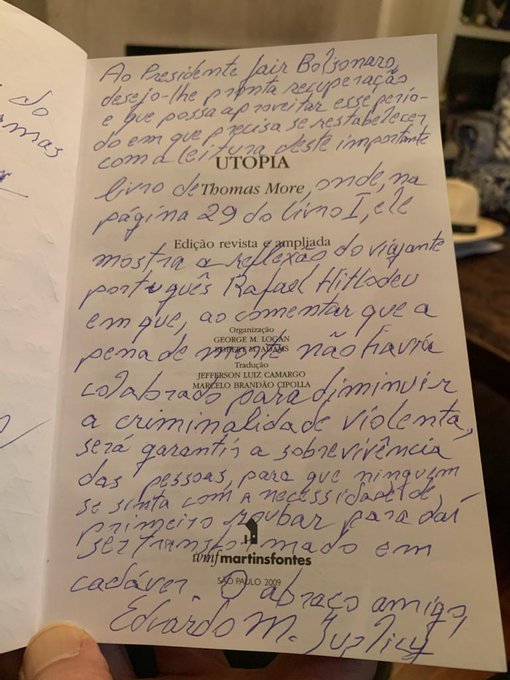 do
rmas
Ao Presidente Jair Bolsonaro,
desejo-lhe pronta recuperação
e que possa aproveitar esse perío-
do em que precisa se restabelecer
com a leitura deste importante
UTOPIA
livro de Thomas More, onde, na
página 29 do livro I, ele
Edição revista e ampliada
mostra a reflexão do viajante
português Rafael Hitlodeu
em que, ao comentar que a
Organização
GEORGE M. LOGAN
ROBERT M. ADAMS
pena de morte não havia
Tradução
JEFFERSON LUIZ CAMARGO
MARCELO BRANDÃO CIPOLLA
colaborado para diminuir
a criminalidade violenta,
será garantir a sobrevivência
das pessoas, para que ninguém
se sinta com a necessidade de,
primeiro roubar para daí
ser transformado em
wmf martinsfontes
SÃO PAULO 2009
cadáver. O abraço amigo,
Eduardo M. Suplicy